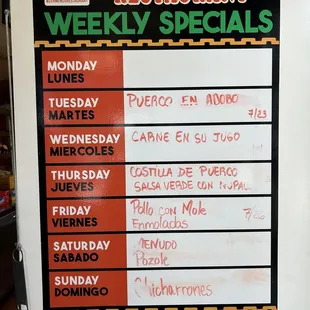 WEEKLY SPECIALS
MONDAY
LUNES
TUESDAY
MARTES
PUERCO EN ADOBO
7/23
WEDNESDAY
MIERCOLES
CARNE EN SU JUGO
THURSDAY
JUEVES
COSTILLA DE PUERCO
SALSA VERDE CON NOPAL
FRIDAY
VIERNES
Pollo con Mole
Enmoladas
SATURDAY
SABADO
MENUDO
Pozole
SUNDAY
DOMINGO
Chicharrones